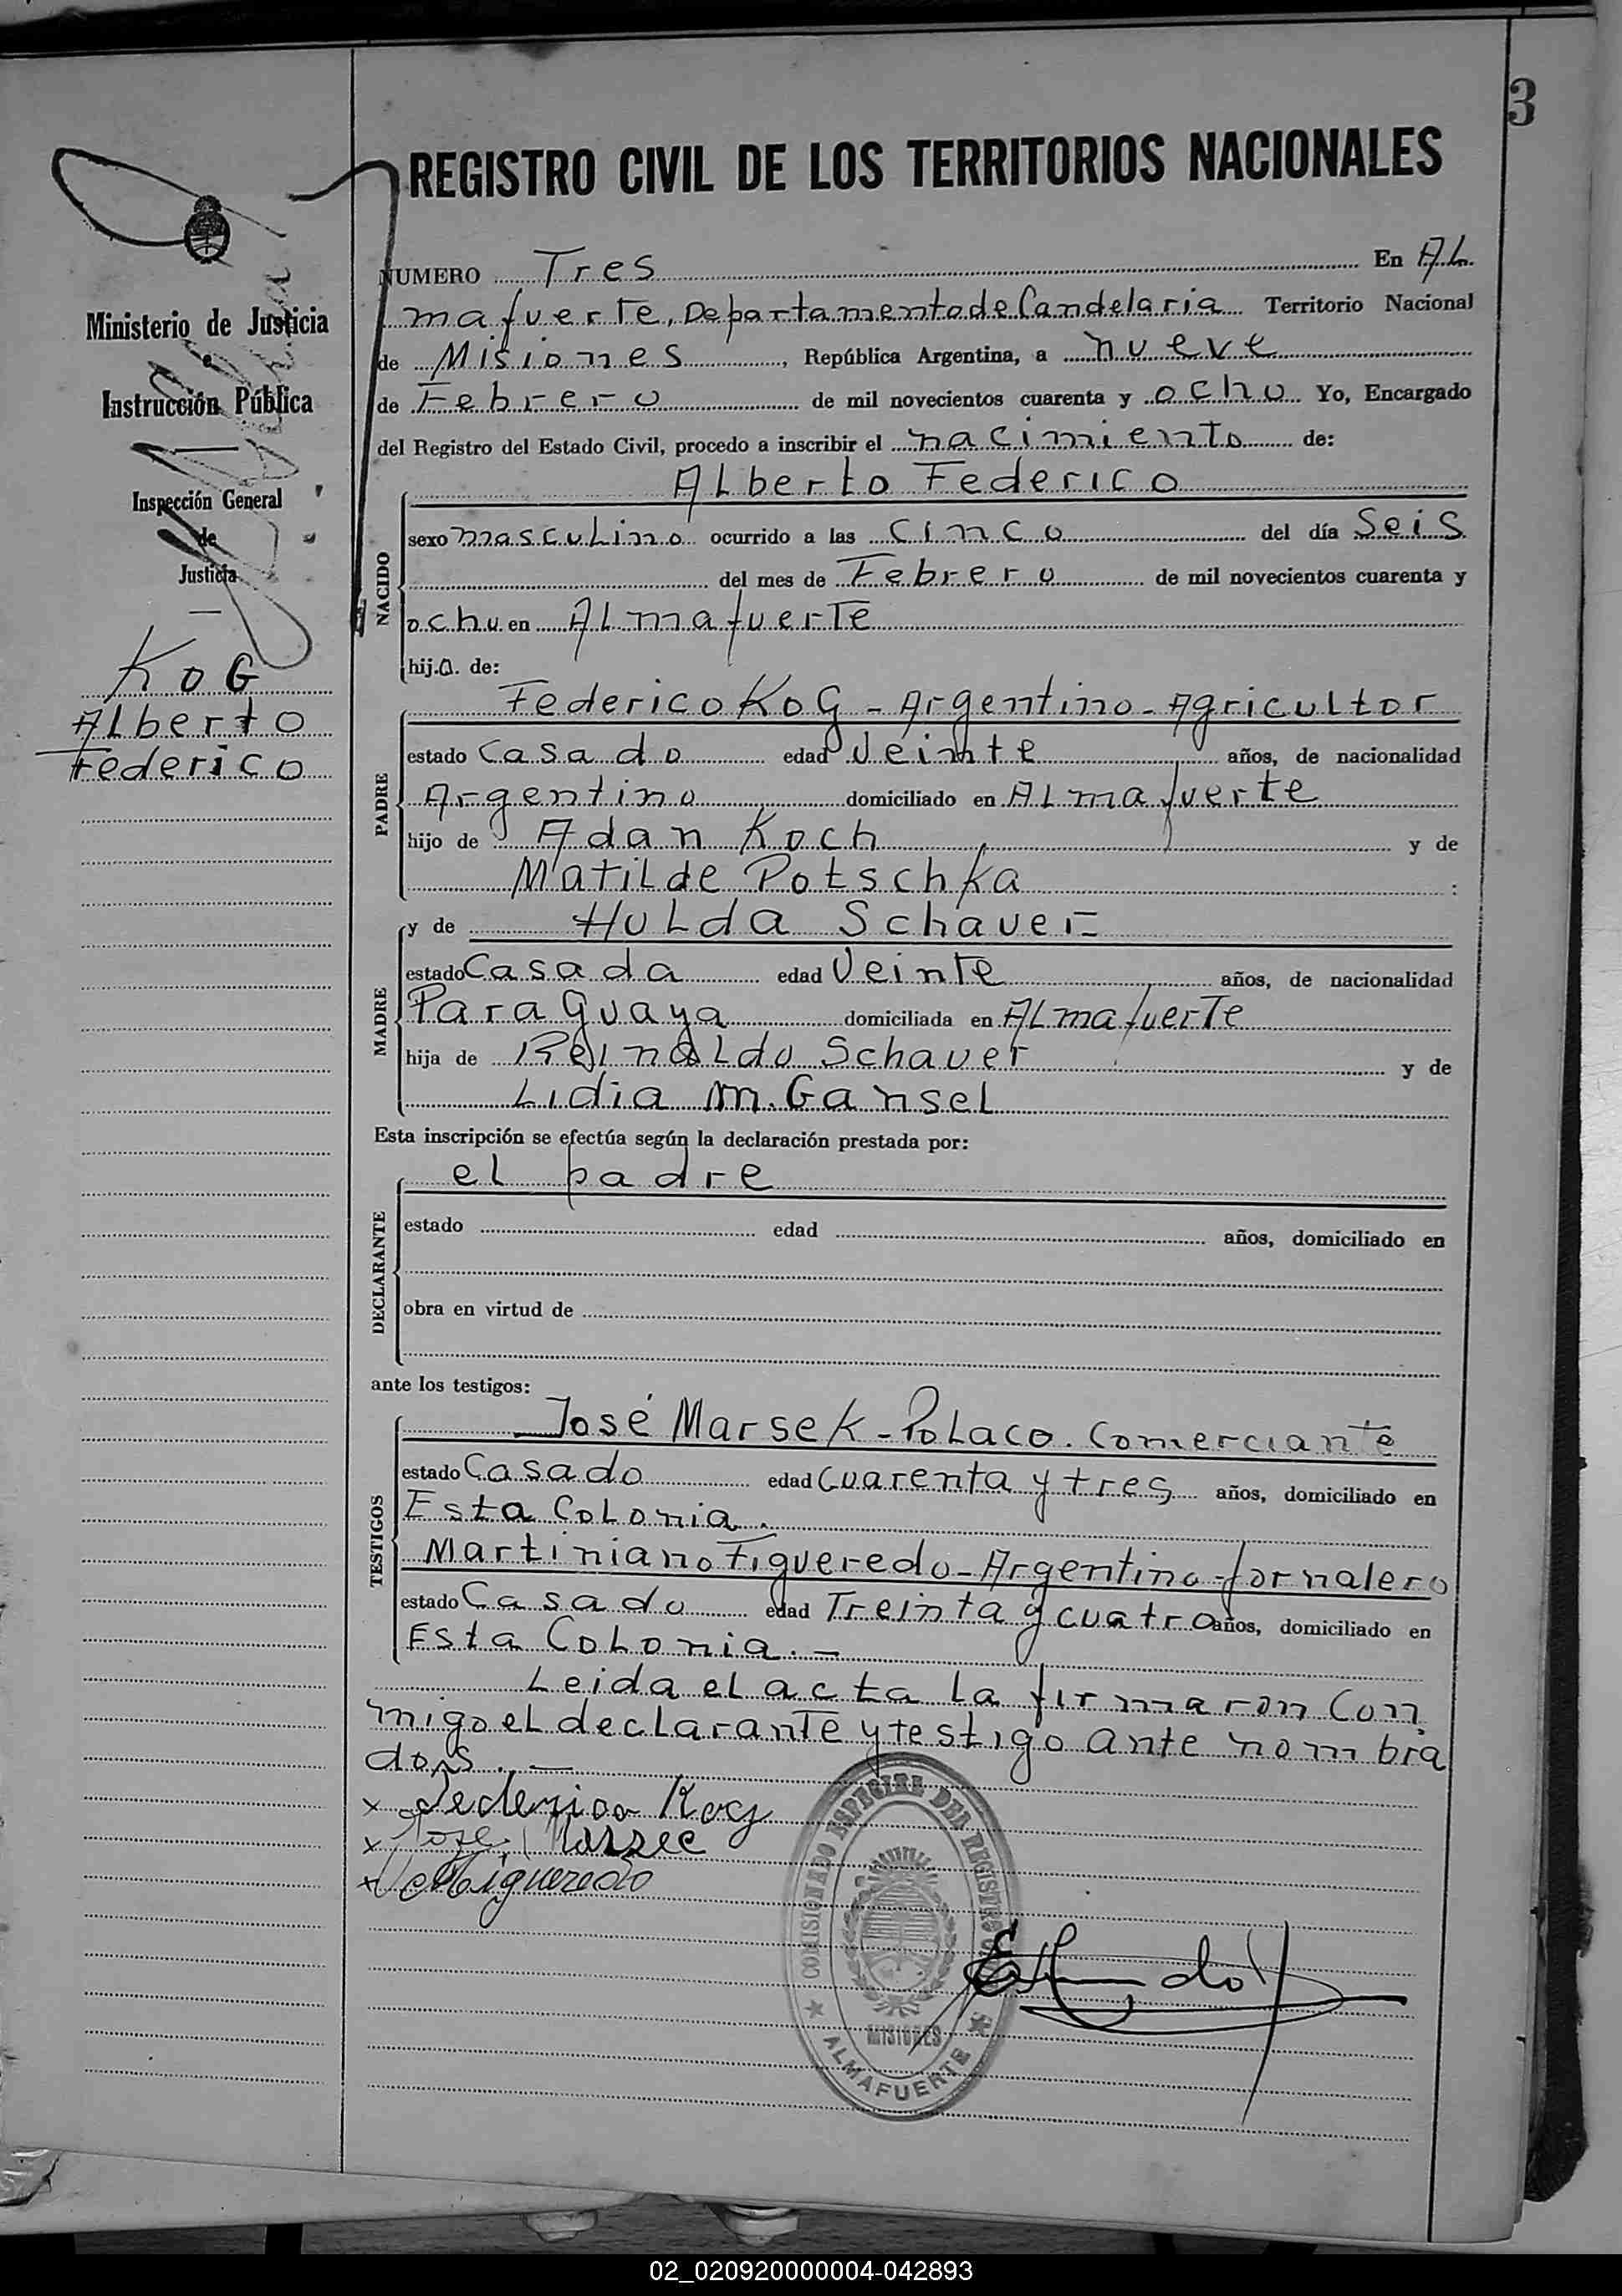 3
REGISTRO CIVIL DE LOS TERRITORIOS NACIONALES
Ministerio de Justicia
e
Instrucción Pública
Inspección General
de
Justicia
KoG
ALberto
Federico
NUMERO Tres En AL
mafuerte, Departamento de Candelaria Territorio Nacional
de Misiones, República Argentina, a nueve
de Febrero de mil novecientos cuarenta y ocho Yo, Encargado
del Registro del Estado Civil, procedo a inscribir el nacimiento de:
NACIDO
ALberto Federico
sexo mascuLino ocurrido a las cinco del día Seis
del mes de Febrero de mil novecientos cuarenta y
ocho en ALmafuerte
hijo. de:
PADRE
Federico KoG - Argentino - AgricuLtor
estado Casado edad Veinte años, de nacionalidad
Argentino domiciliado en ALmafuerte
hijo de Adan Koch y de
MatiLde Potschka :
MADRE
y de HuLda Schauer
estado Casada edad Veinte años, de nacionalidad
ParaGuaya domiciliada en ALmafuerte
hija de ReinaLdo Schauer y de
Lidia M. GanseL
Esta inscripción se efectúa según la declaración prestada por:
DECLARANTE
eL padre
estado edad años, domiciliado en
obra en virtud de
ante los testigos:
TESTIGOS
José Marsek - PoLaco. Comerciante
estado Casado edad Cuarenta y tres años, domiciliado en
Esta CoLonia.
Martiniano Figueredo - Argentino - Jornalero
estado Casado edad Treinta y cuatro años, domiciliado en
Esta CoLonia. -
Leida eL acta La firmaron Con
migo eL decLarante y testigo ante nombra
dos. -
x Federico Kog
x Jose Marsec
x Figueredo
COMISIONADO ESPECIAL DEL REGISTRO
MISIONES
★ ALMAFUERTE ★
02_020920000004-042893